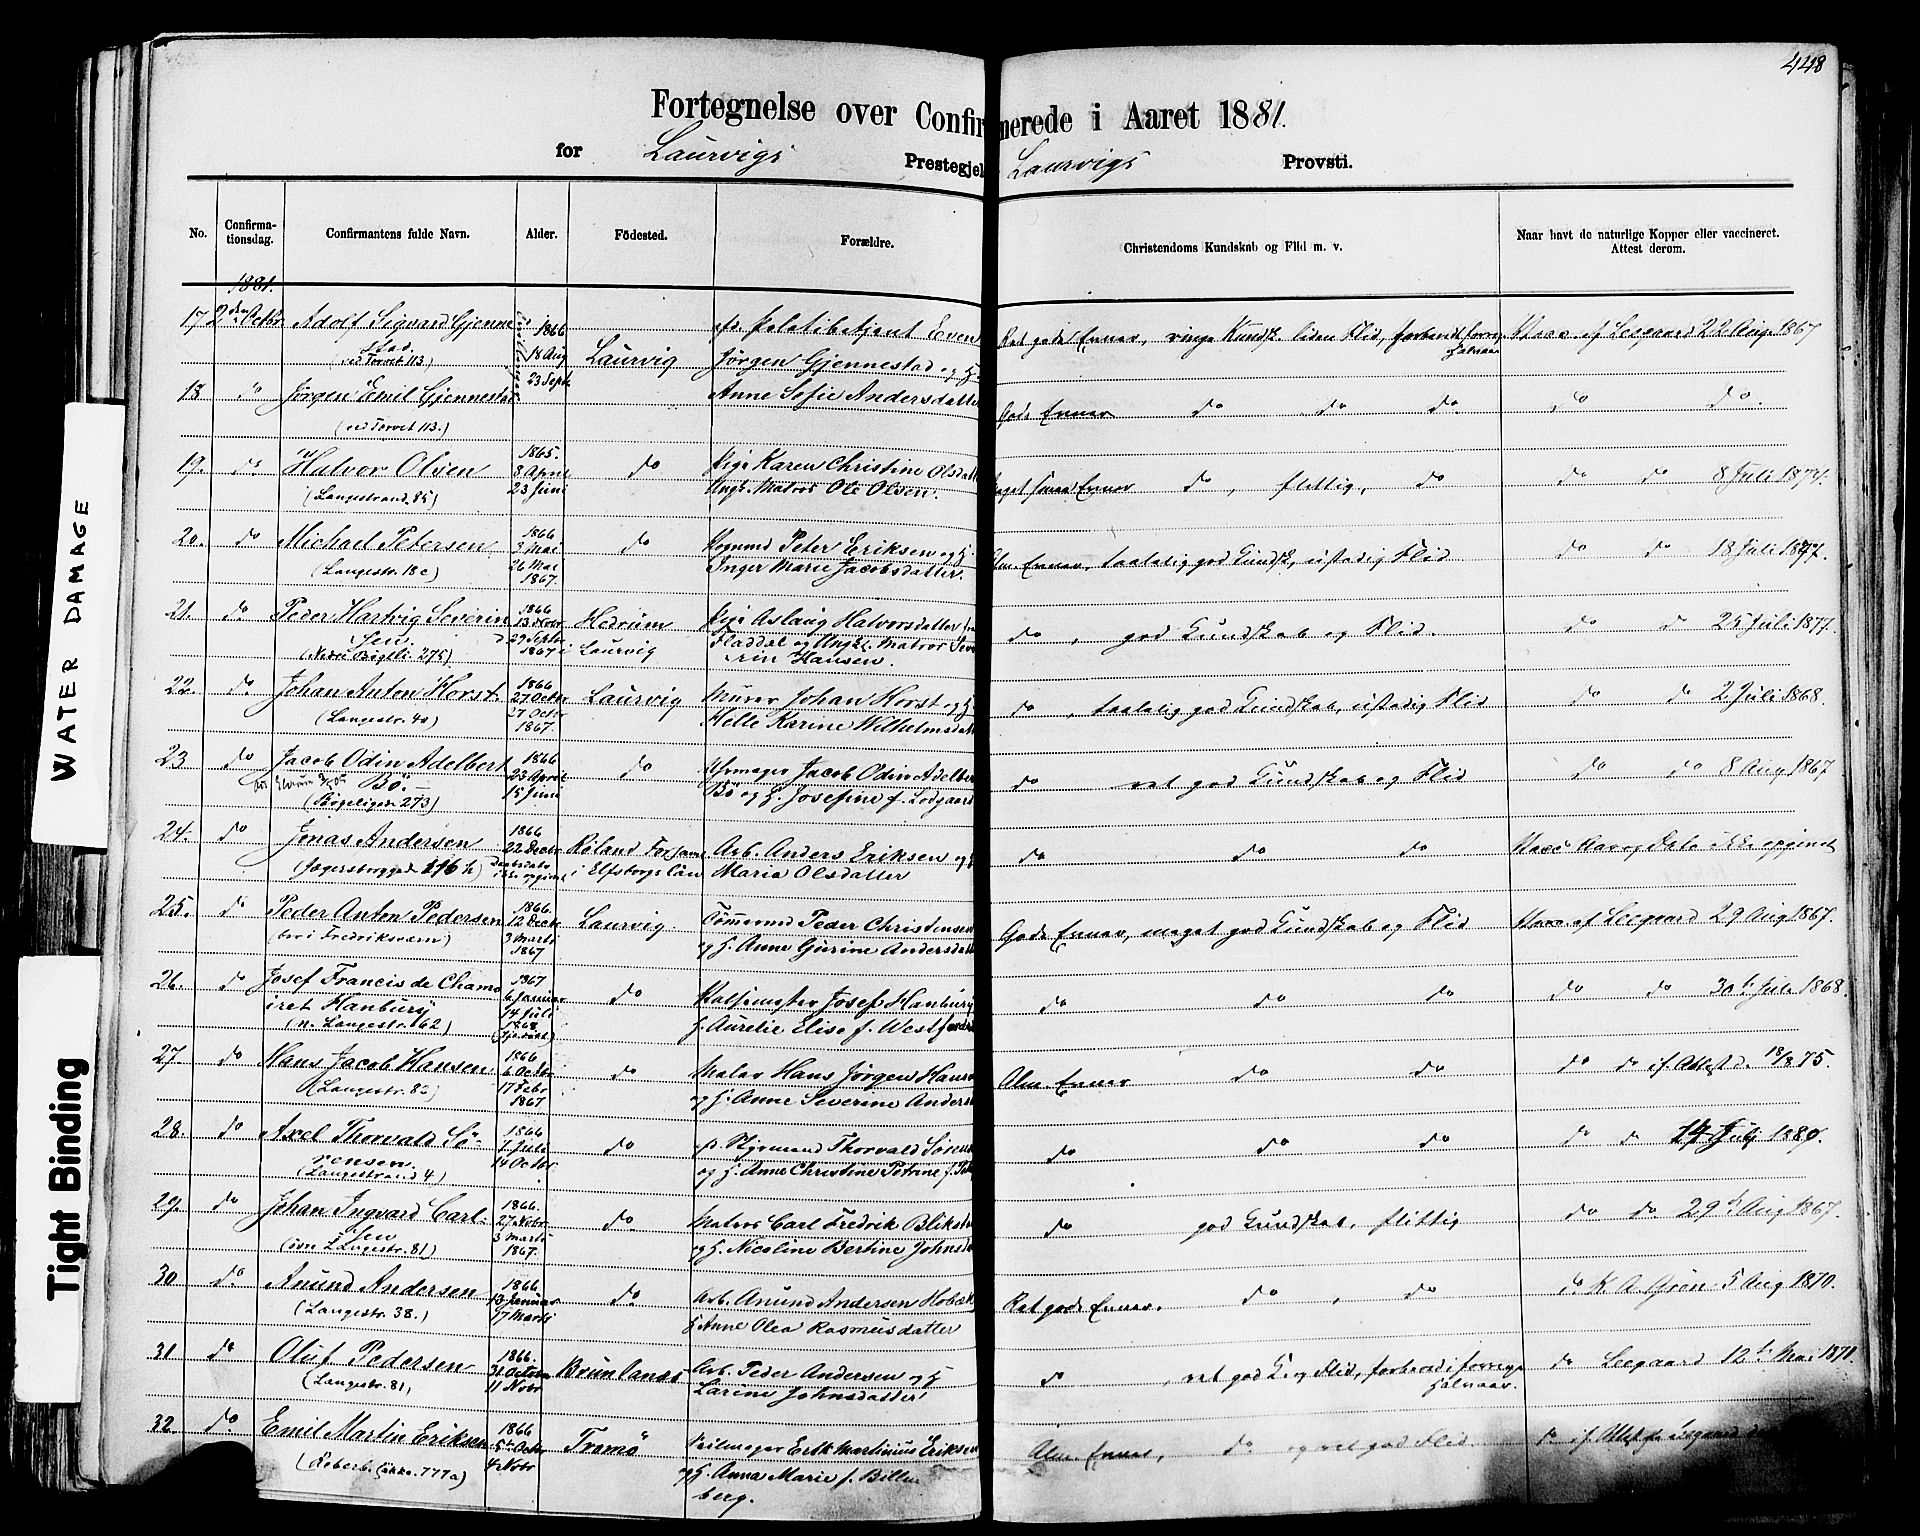 448
Fortegnelse over Confirmerede i Aaret 1881.
for Laurvigs Prestegjel Laurvigs Provsti.
No. Confirma-tionsdag. Confirmantens fulde Navn. Alder. Födested. Forældre. Christendoms Kundskab og Flid m. v. Naar havt de naturlige Kopper eller vaccineret. Attest derom.
1881.
17 2den Octbr Adolf Sigvard Gjenne 1866
stad.
ved Torvet 113) 18 Aug Laurvig Jørgen Gjennestad og H.
23 Septr
Politibetjent Even
ringe Kundsk. liden Flid, 22 Aug 1867
18 do Jörgen Emil Gjennestad Anne Sofie Andersdatter
(ved Torvet 113.) Gode Evner do do do do do.
19. do Halvor Olsen 1865. 8 April 23 Juni do Pige Karen Christine Olsdatt
(Langestrand 85) Ungk. Matros Ole Olsen. Meget smaa Evner do, flittig, do do do 8 Juli 1874.
20. do Michael Petersen 1866 3 Mai 26 Mai 1867. do Peter Eriksen og H.
(Langestr. 18c) Inger Marie Jacobsdatter. Alm. Evner, taalelig god Kundsk, ustadig Flid do do 18 Juli 1877.
21. do Peder Hartvig Severin 1866 13 Novbr 29 Septbr 1867 Hedrum i Laurvig Pige Aslaug Halvorsdatter fra
sen
275) Fladdal og Ungk. Matros Seve
rin Hansen. do, god Kundskab og Flid. do do 25 Juli 1877.
22. do Johan Anton Horst. 1866 27 Octbr 27 Octbr 1867. Laurvig Murer Johan Horst og H.
(Langestr. 40) Helle Karine Wilhelmsdatt do, taalelig god Kundskab, ustadig Flid do do 2 Juli 1868.
23 do Jacob Odin Adelbert 1866 23 April 15 Juni do Uhrmager Jacob Odin Adelbe
Bö.
273) Bö og H. Josefine f. Lodgaard do ret god Kundskab og Flid do do 8 Aug 1867
24. do Jonas Andersen 1866 22 Decbr Arb. Anders Eriksen og H.
116 h) i Elfsborgs Län Maria Olsdatter do do do Vacc. Navn og Dato ikke opgivet
25. do Peder Anton Pedersen 1866 12 Decbr 3 Marts 1867 Laurvig. Tömmermd Peder Christensen
bor i Fredriksværn) og H. Anne Gurine Andersdatt Gode Evner, meget god Kundskab og Flid Vacc. af Leegaard 29 Aug 1867.
26. do Josef Francis de Chamo 1867 6 Januar 14 Juli 1868 do Josef Hanbury
iret Hanbury
(n. Langestr. 62) H. Aurelie Elise f. West do do do do do 30te Juli 1868.
27. do Hans Jacob Hansen 1866 6 Octbr 17 Febr 1867 do Maler Hans Jørgen Hansen
og H. Anne Severine Anders Alm. Evner do do do do if. Attest d. 18/8 75.
28. do Axel Thorvald Sö- 1866 7. Juli 14 Octbr do Styrmand Thorvald Sørens
rensen.
(Langestrand 4) og H. Anne Christine Petrine f. do do do do do 14 Juli 1880.
29. do Johan Ingvard Carl- 1866. 27 Novbr 3 Marts 1867. do Matros Carl Fredrik Blikst
sen
(övre Langestr. 81) og H. Nicoline Bertine Johnsd do god Kundskab, flittig do do 29de Aug 1867.
30 do Anund Andersen 1866 13 Januar 17 Marts do. Arb. Anund Andersen
(Langestr. 38.) H. Anne Olea Rasmusdatter Ret gode Evner. do, do do K. A. Grøn 5 Aug 1870.
31 do Oluf Pedersen 1866. 31 Octbr 11 Novbr Brunlanæs Arb. Peder Andersen og H
(Langestr. 81) Larine Johnsdatter do, ret god K. og Flid, forberedt i forrige
Halvaar. do Leegaard 12te Mai 1871.
32. do Emil Martin Eriksen 1866 5te Octbr 4 Novbr Tromö Seilmager Erik Martinius Eriksen
777a) og H. Anna Marie f. Billen
berg. Alm. Evner, do og ret god Flid. do if. Attest fra Leegaard
WATER DAMAGE
Tight Binding